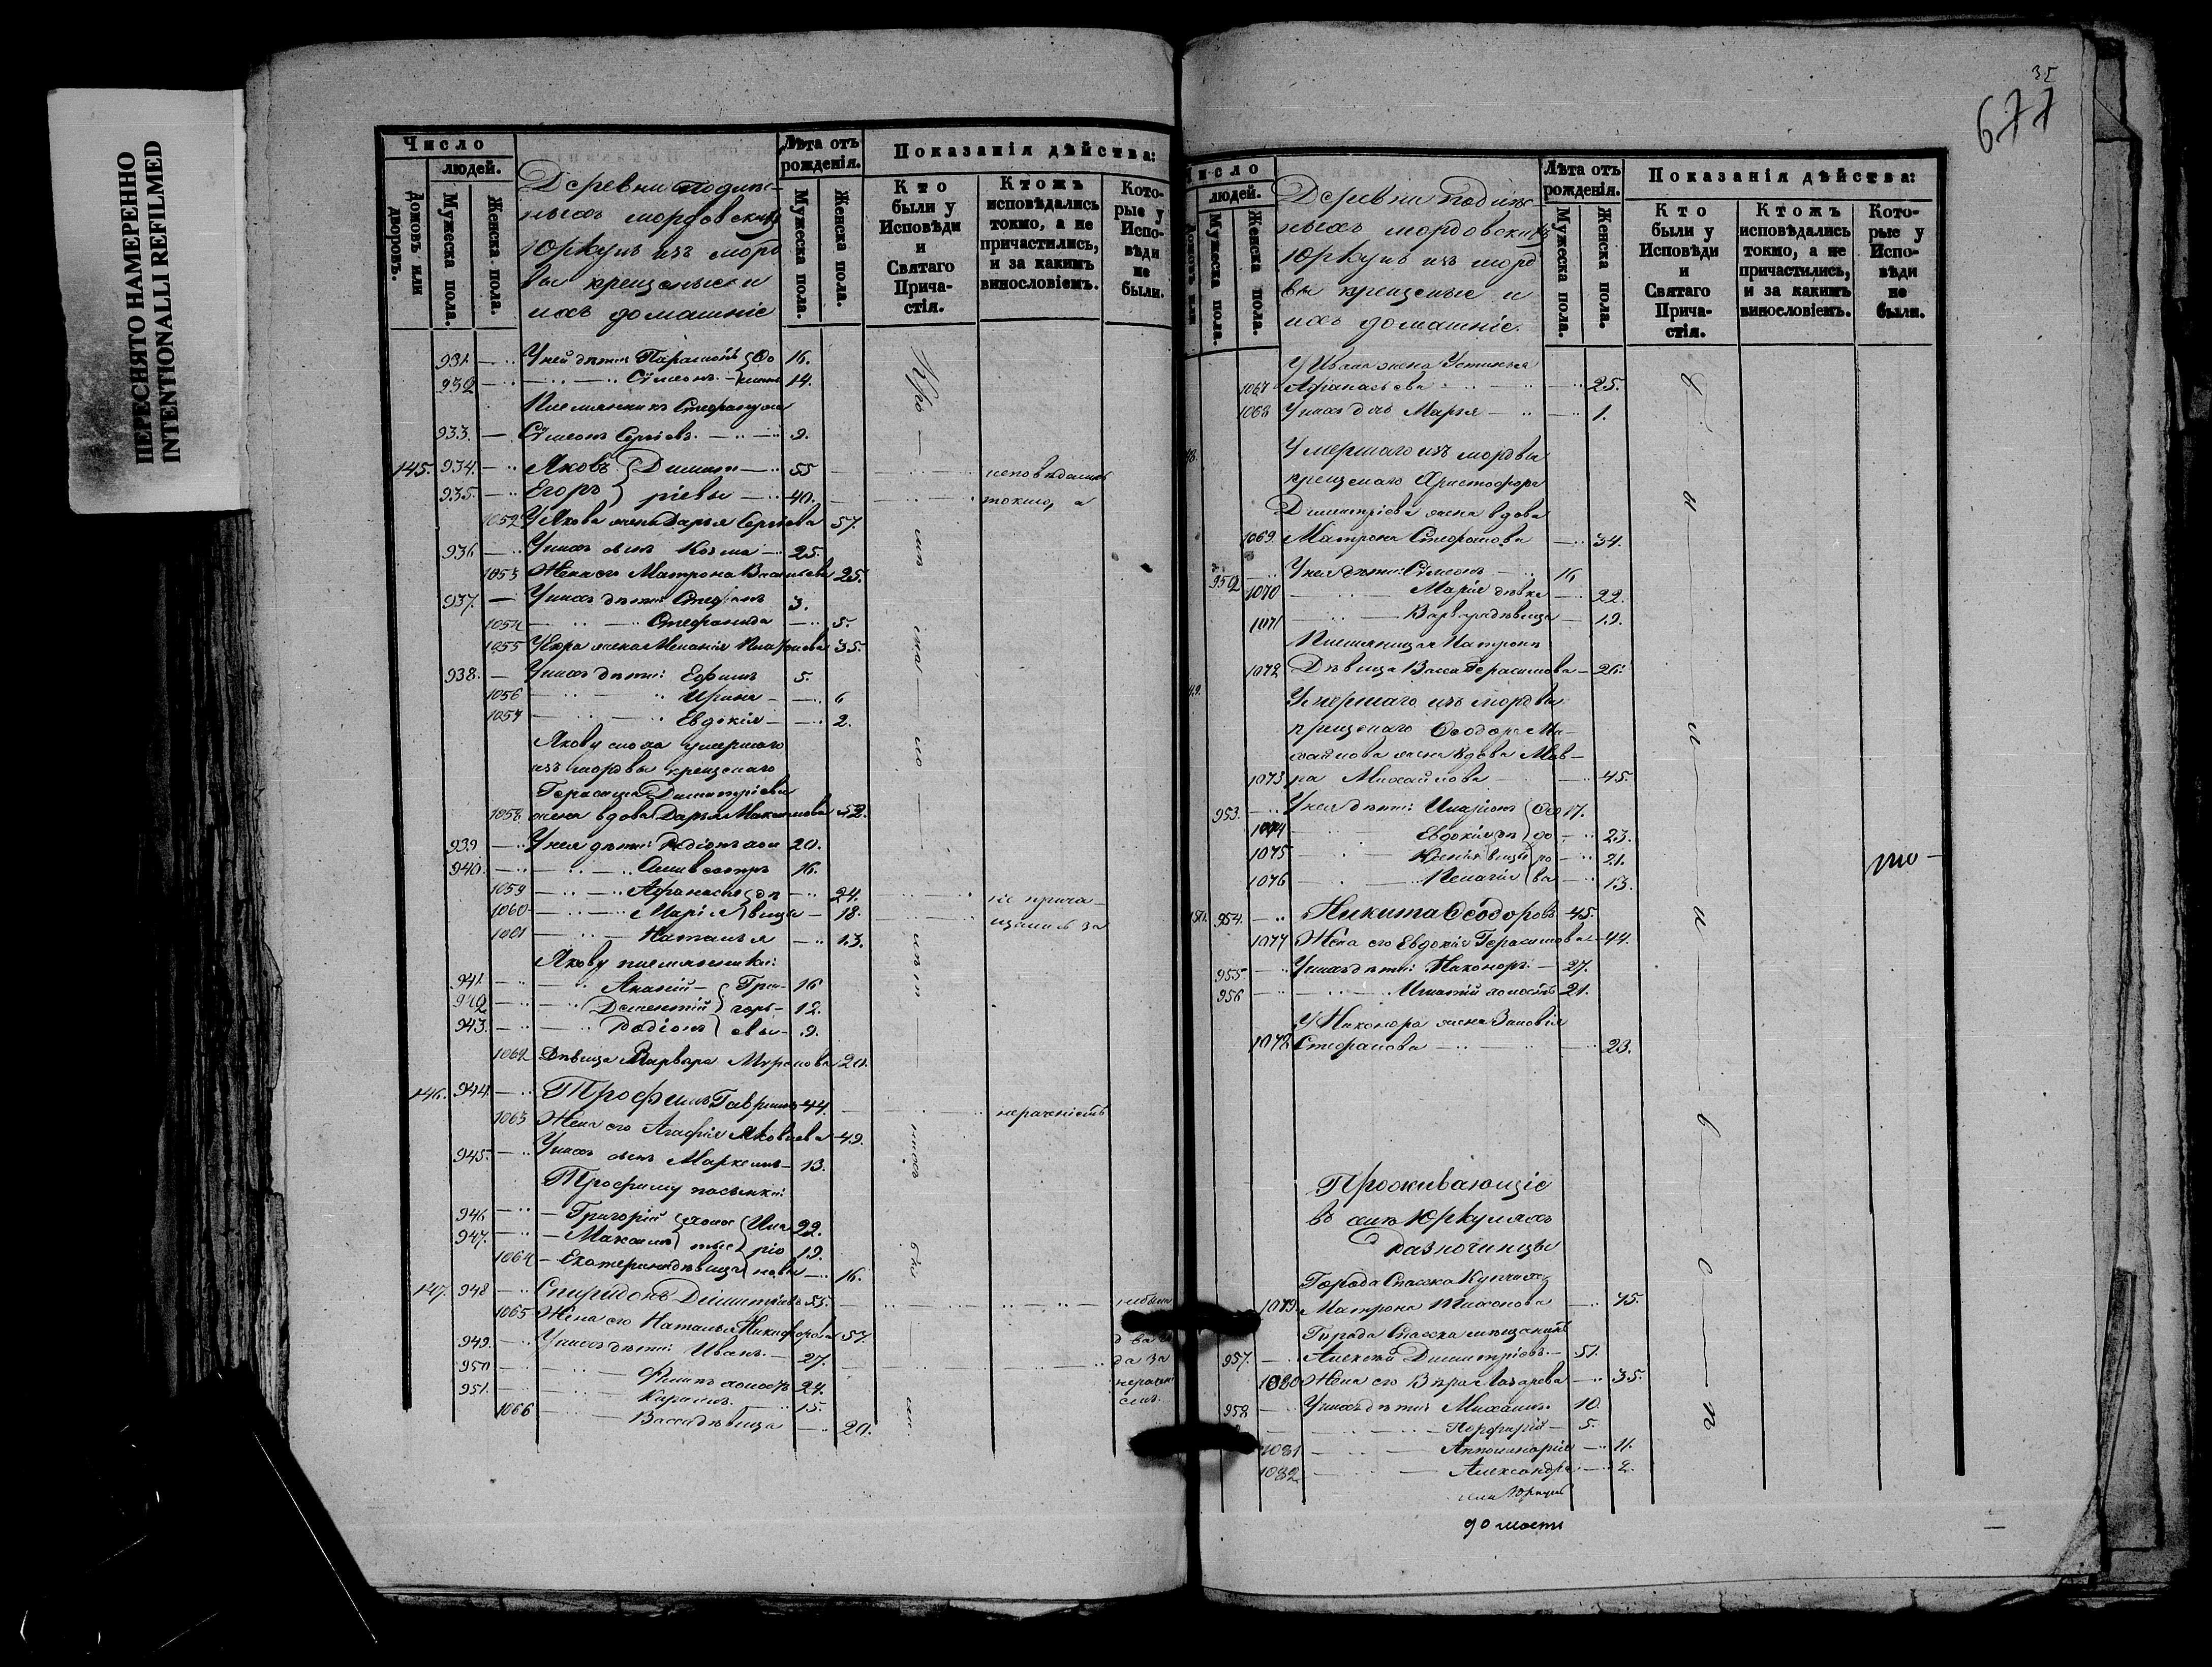 ПЕРЕСНЯТО НАМЕРЕННО
INTENTIONALLI REFILMED
Число
людей.
Домовъ или дворовъ.
Мужеска пола.
Женска пола.
Деревни
ныхъ мордовскихъ
Юркуль изъ морд
вы крещеные и
ихъ домашніе
Лѣта отъ рожденія.
Мужеска пола.
Женска пола.
Показанія дѣйства:
Кто были у Исповѣди и Святаго Прича-стія.
Ктожъ исповѣдались токмо, а не причастились, и за какимъ винословіемъ.
Кото-рые у Испо-вѣди не были.
931. У ней дѣти Парамонъ 16.
932 Сѵмеонъ 14.
Племянникъ
933. Сѵмеонъ Сергіевъ 9.
145. 934. Яковъ Димит 55
935. Егоръ ріевы 40.
исповѣдались
токмо, а
1052 У Якова жена Дарья Сергіева 57.
936 У нихъ сынъ Козма 25.
1053 Жена его Матрона Васильева 25.
937. У нихъ дѣти: Стефанъ 3.
1054 Стефанида 5.
1055 У Егора жена Меланія 35.
938. У нихъ дѣти: Ефимъ 5.
1056 Ирина 6
1057 Евдокія 2.
Якову сноха умершаго
изъ мордвы крещенаго
Герасима Димитріева
1058. жена вдова Дарья Максимова 52.
939 У нея дѣти: Родіонъ 20.
940. Сильвестръ 16.
1059 Афанасія дѣ 24.
1060 Марія вицы 18.
1061 Наталья 13.
не прича
щались за
Якову племянники:
941. Ананій Гри 16
942 Дементій горь 12.
943. Родіонъ евы 9.
1062 Дѣвица Варвара Миронова 20.
146. 944. Трофимъ Гавриловъ 44.
нераченіемъ
1063 Жена его Агафія Яковлева 49.
945. У нихъ сынъ Маркелъ 13.
Трофиму пасынки:
946 Григорій холос Ила 22.
947. Максимъ тые ріо 19.
1064 Екатерина дѣвица новы 16.
147. 948 Спиридонъ Димитріевъ 55.
1065 Жена его Наталья Никифорова 57.
949. У нихъ дѣти: Иванъ 27.
950 Филипъ холостъ 24.
951. 15.
1066 Васса дѣвица 20.
35
677
Число
людей.
Домовъ или
Мужеска пола.
Женска пола.
Деревни
ныхъ мордовскихъ
Юркуль изъ морд
вы крещеные и
ихъ домашніе.
Лѣта отъ рожденія.
Мужеска пола.
Женска пола.
Показанія дѣйства:
Кто были у Исповѣди и Святаго Прича-стія.
Ктожъ исповѣдались токмо, а не причастились, и за какимъ винословіемъ.
Кото-рые у Испо-вѣди не были.
У Ивана жена Устинья
1067 Афанасьева 25.
1068 У нихъ дочь Марья 1.
Умершаго изъ мордвы
крещенаго Христофора
Димитріева жена вдова
1069. Матрона Стефанова 34.
952 У нея дѣти: Сѵмеонъ 16
1070 Марія дѣвка 22.
1071 Варвара дѣвица 19.
Племянница Матронѣ
1072 Дѣвица Васса Герасимова 26.
Умершаго изъ мордвы
крещенаго Ѳеодора Ми
хайлова жена вдова Мав
1073 ра Михайлова 45.
953. У нея дѣти: Иларіонъ Ѳео 17.
1074 Евдокія дѣ до 23.
1075 Ксенія вицы ро 21.
1076 Пелагія вы 13.
150. 954. Никита Ѳеодоровъ 45.
1077 Жена его Евдокія Герасимова 44.
955. У нихъ дѣти: Никоноръ 27.
956 Игнатій холостъ 21.
У Никонора жена Зиновія
1078 Стефанова 23.
Проживающіе
въ селѣ Юркуляхъ
разночинцы
Города Спасска
1079. Матрона Тихонова 75.
Города Спасска мѣщанинъ
957. Алексѣй Димитріевъ 51.
1080 Жена его Вѣра Лазарева 35.
958 У нихъ дѣти: Михаилъ 10.
Порфирій 5.
1081 Апполинарія 11.
1082 Александра 2.